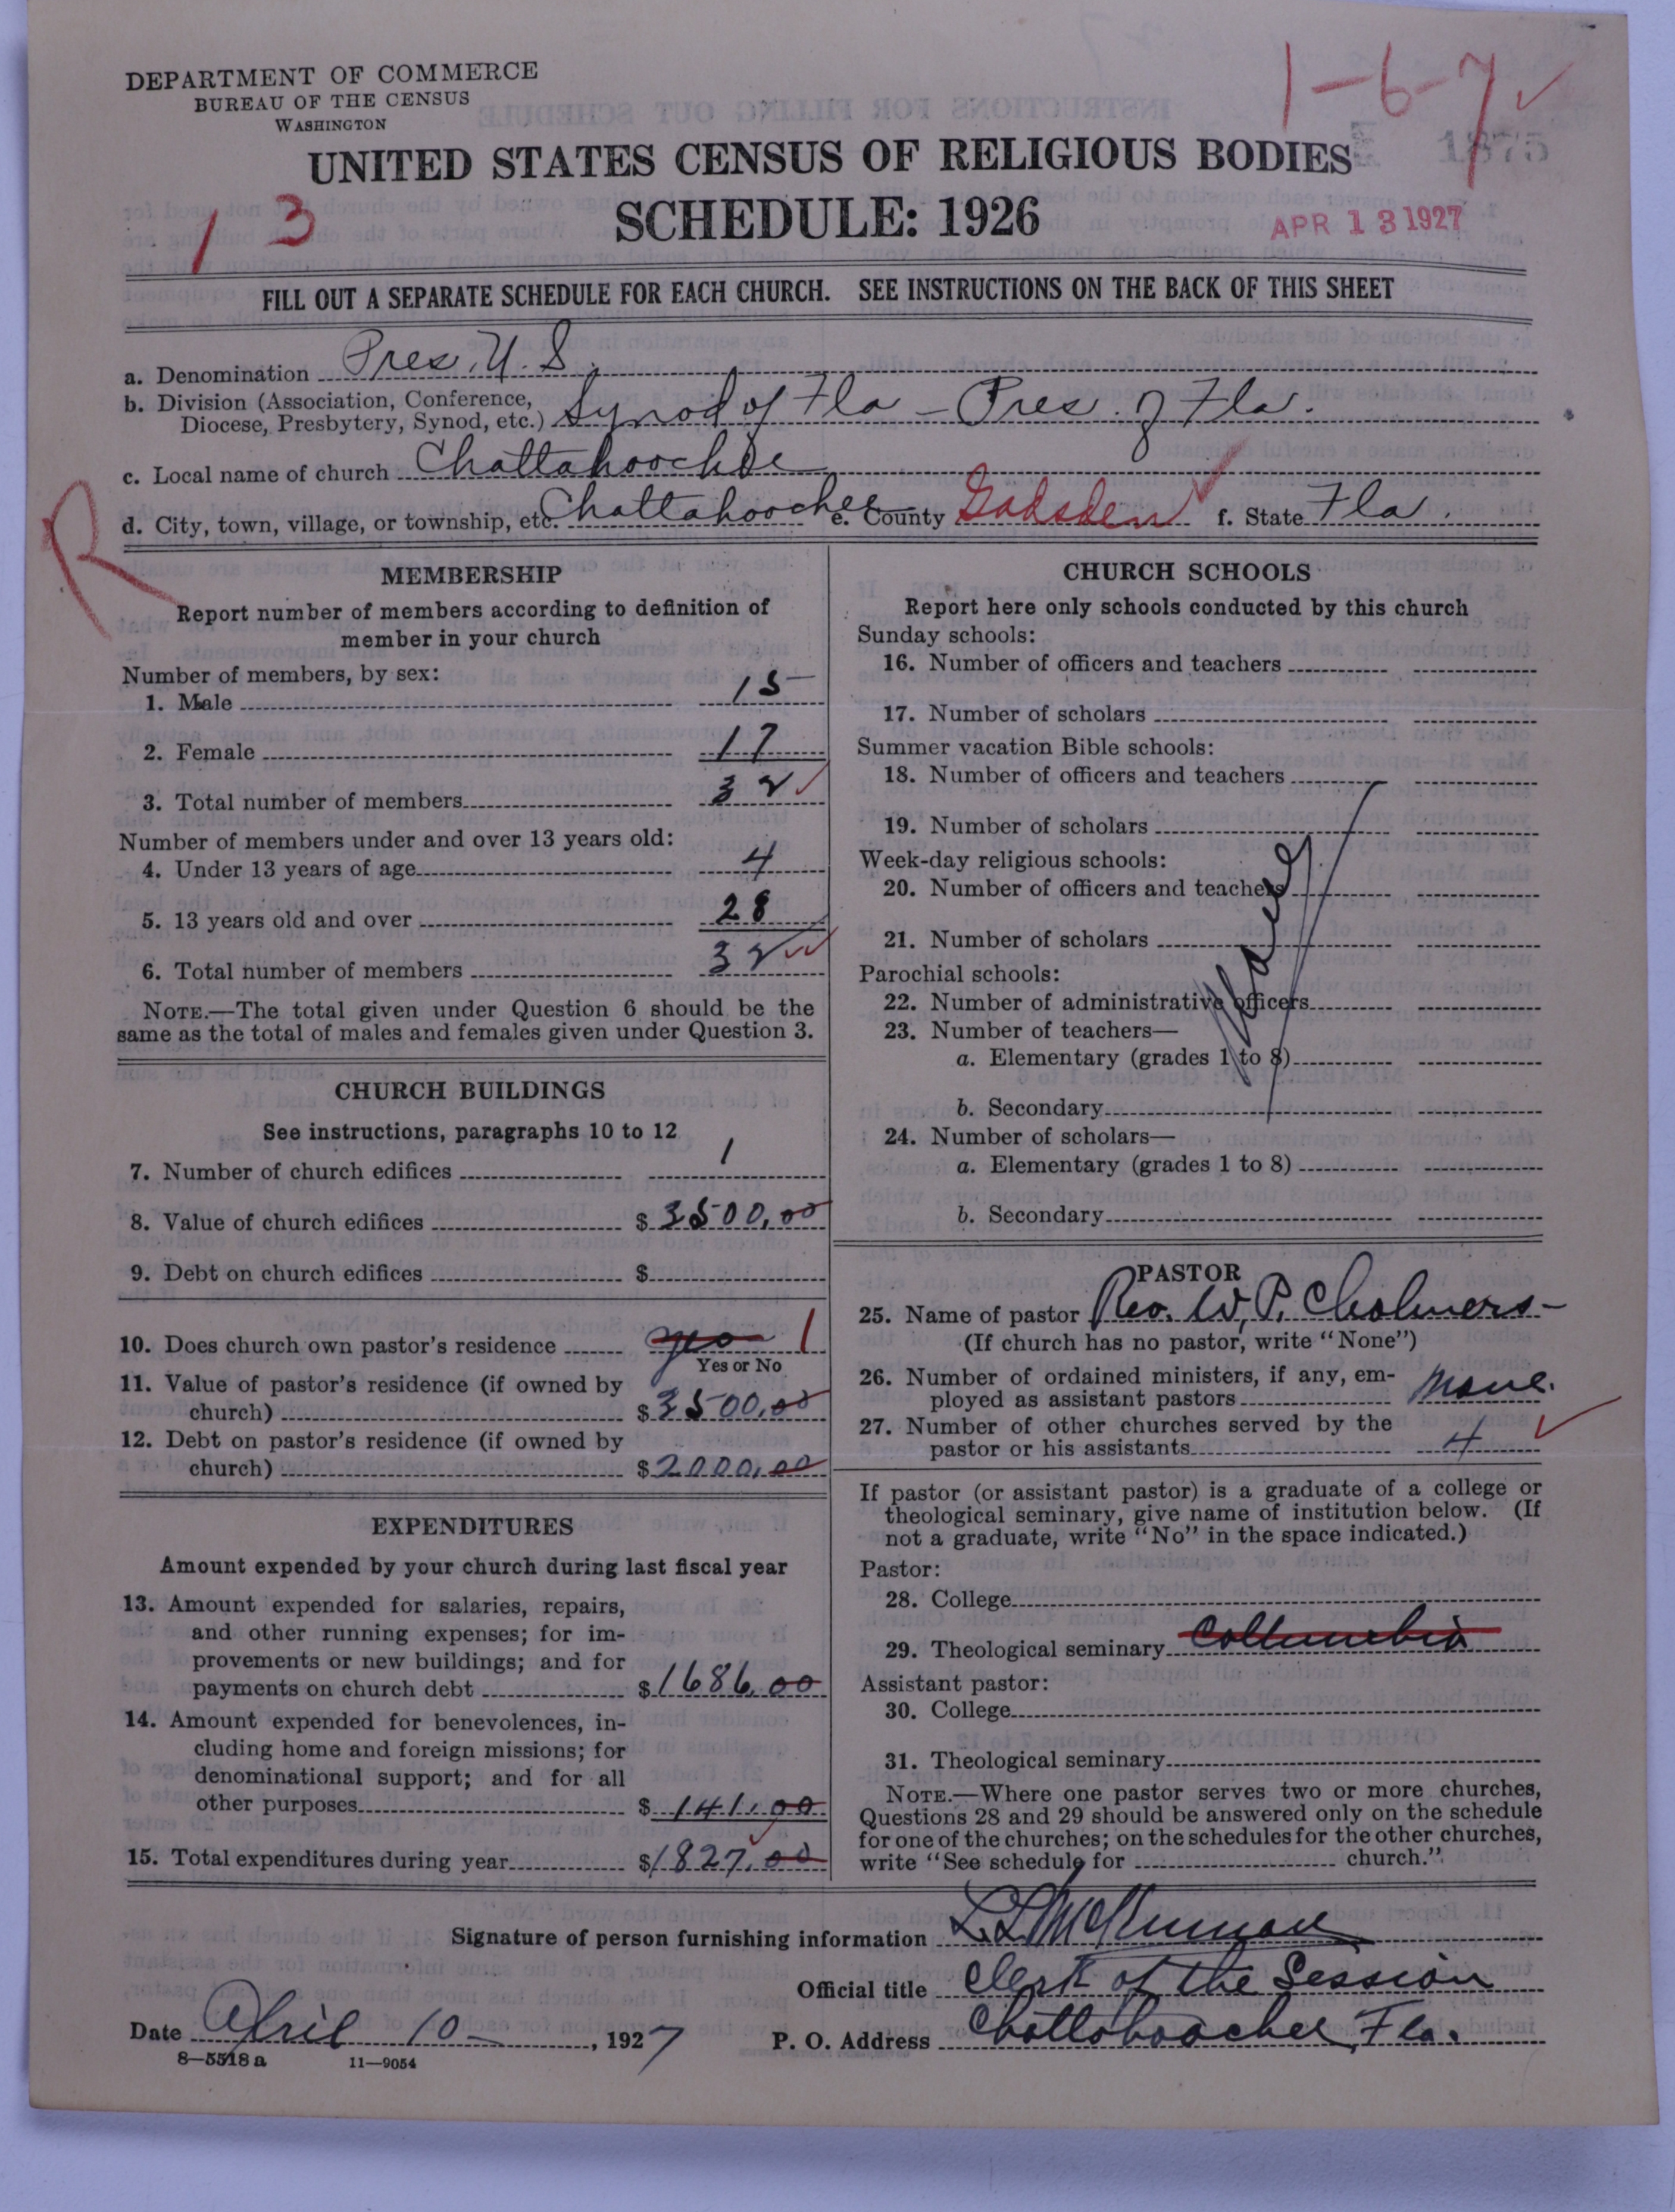 DEPARTMENT OF COMMERCE
BUREAU OF THE CENSUS
WASHINGTON
1-6-7
1875
UNITED STATES CENSUS OF RELIGIOUS BODIES
13
SCHEDULE: 1926
APR 13 1927
FILL OUT A SEPARATE SCHEDULE FOR EACH CHURCH. SEE INSTRUCTIONS ON THE BACK OF THIS SHEET
a. Denomination Pres. U.S.
b. Division (Association, Conference,
Diocese, Presbytery, Synod, etc.) Synod of Fla - Pres. of Fla.
c. Local name of church Chattahoochee
d. City, town, village, or township, etc. Chattahoochee e. County Gadsden f. State Fla.
R
MEMBERSHIP
Report number of members according to definition of
member in your church
Number of members, by sex:
1. Male 15
2. Female 17
3. Total number of members 32
Number of members under and over 13 years old:
4. Under 13 years of age 4
5. 13 years old and over 28
6. Total number of members 32
NOTE.—The total given under Question 6 should be the
same as the total of males and females given under Question 3.
CHURCH BUILDINGS
See instructions, paragraphs 10 to 12
7. Number of church edifices 1
8. Value of church edifices $ 3500.00
9. Debt on church edifices $
10. Does church own pastor's residence yes 1
Yes or No
11. Value of pastor's residence (if owned by
church) $ 3500.00
12. Debt on pastor's residence (if owned by
church) $ 2000.00
EXPENDITURES
Amount expended by your church during last fiscal year
13. Amount expended for salaries, repairs,
and other running expenses; for im-
provements or new buildings; and for
payments on church debt $ 1686.00
14. Amount expended for benevolences, in-
cluding home and foreign missions; for
denominational support; and for all
other purposes $ 141.00
15. Total expenditures during year $ 1827.00
CHURCH SCHOOLS
Report here only schools conducted by this church
Sunday schools:
16. Number of officers and teachers
17. Number of scholars
Summer vacation Bible schools:
18. Number of officers and teachers
19. Number of scholars
Week-day religious schools:
20. Number of officers and teachers
21. Number of scholars
Parochial schools:
22. Number of administrative officers
23. Number of teachers—
a. Elementary (grades 1 to 8)
b. Secondary
24. Number of scholars—
a. Elementary (grades 1 to 8)
b. Secondary
PASTOR
25. Name of pastor Rev. W. P. Chalmers
(If church has no pastor, write "None")
26. Number of ordained ministers, if any, em-
ployed as assistant pastors None.
27. Number of other churches served by the
pastor or his assistants 4
If pastor (or assistant pastor) is a graduate of a college or
theological seminary, give name of institution below. (If
not a graduate, write "No" in the space indicated.)
Pastor:
28. College
29. Theological seminary Collumbia
Assistant pastor:
30. College
31. Theological seminary
NOTE.—Where one pastor serves two or more churches,
Questions 28 and 29 should be answered only on the schedule
for one of the churches; on the schedules for the other churches,
write "See schedule for church."
Signature of person furnishing information L.L.
Official title Clerk of the Session
Date April 10, 1927 P. O. Address Chattahoochee, Fla.
8—5518 a 11—9054